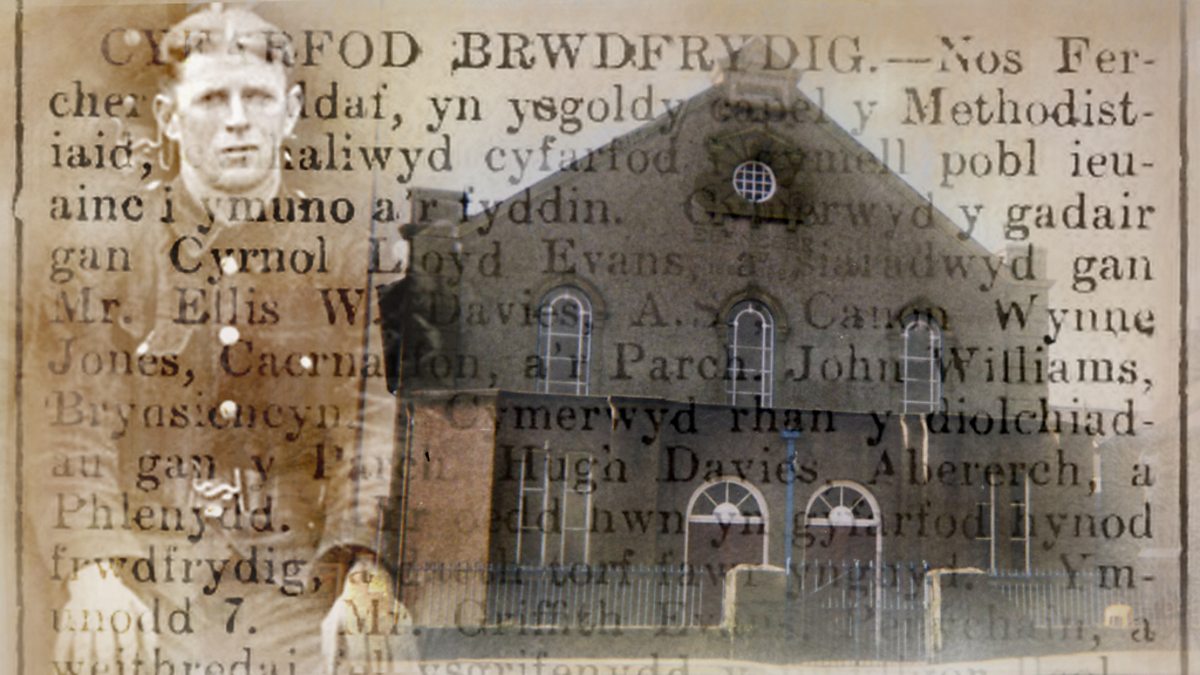 CYFARFOD BRWDFRYDIG.—Nos Fer-
cher ddaf, yn ysgoldy capel y Methodist-
iaid, cynhaliwyd cyfarfod i gymell pobl ieu-
ainc i ymuno a'r fyddin. Cymerwyd y gadair
gan Cyrnol Lloyd Evans, a siaradwyd gan
Mr. Ellis W. Davies, A.S., Canon Wynne
Jones, Caernarfon, a'r Parch. John Williams,
Brynsiencyn. Cymerwyd rhan y diolchiad-
au gan y Parch. Hugh Davies, Abererch, a
Phlenydd. Yr oedd hwn yn gyfarfod hynod
frwdfrydig, a daeth torf fawr ynghyd. Ym-
unodd 7. Mr. Griffith Evans, a
weithredai fel ysgrifenydd y